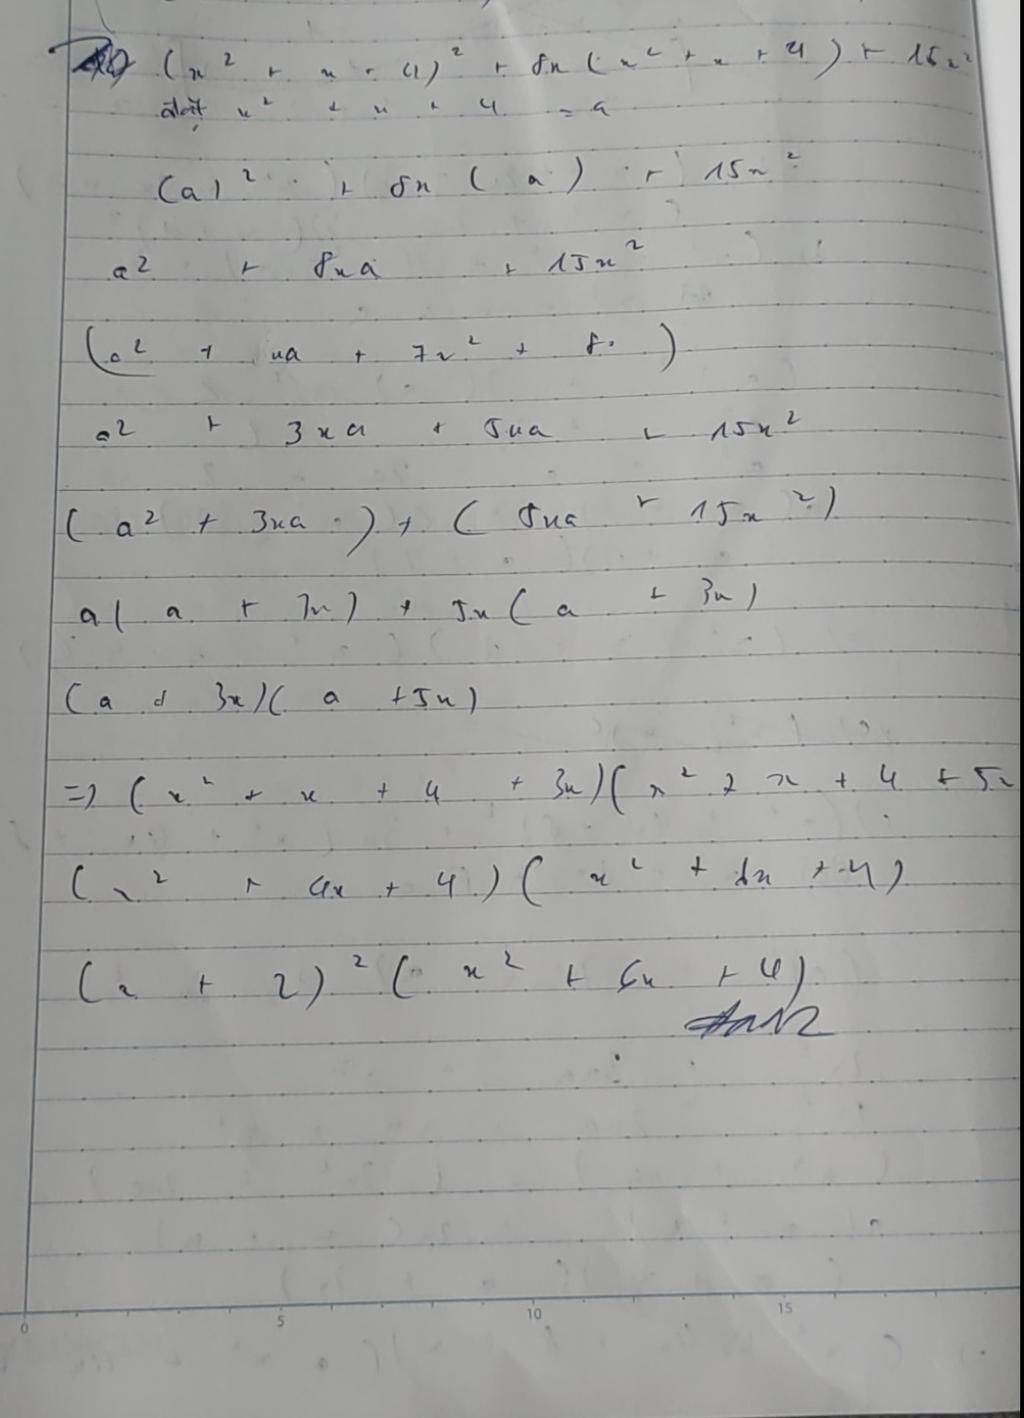 (x² + x + 4)² + 8x (x² + x + 4) + 15x²
đặt x² + x + 4 = a
(a)² + 8x (a) + 15x²
a² + 8xa + 15x²
(a² + xa + 7x² + 8. )
a² + 3xa + 5xa + 15x²
(a² + 3xa) + (5xa + 15x²)
a( a + 3x) + 5x ( a + 3x)
(a + 3x)( a + 5x)
=> (x² + x + 4 + 3x)(x² + x + 4 + 5x
(x² + 4x + 4) (x² + 6x + 4)
(x + 2)² (x² + 6x + 4)
0 5 10 15